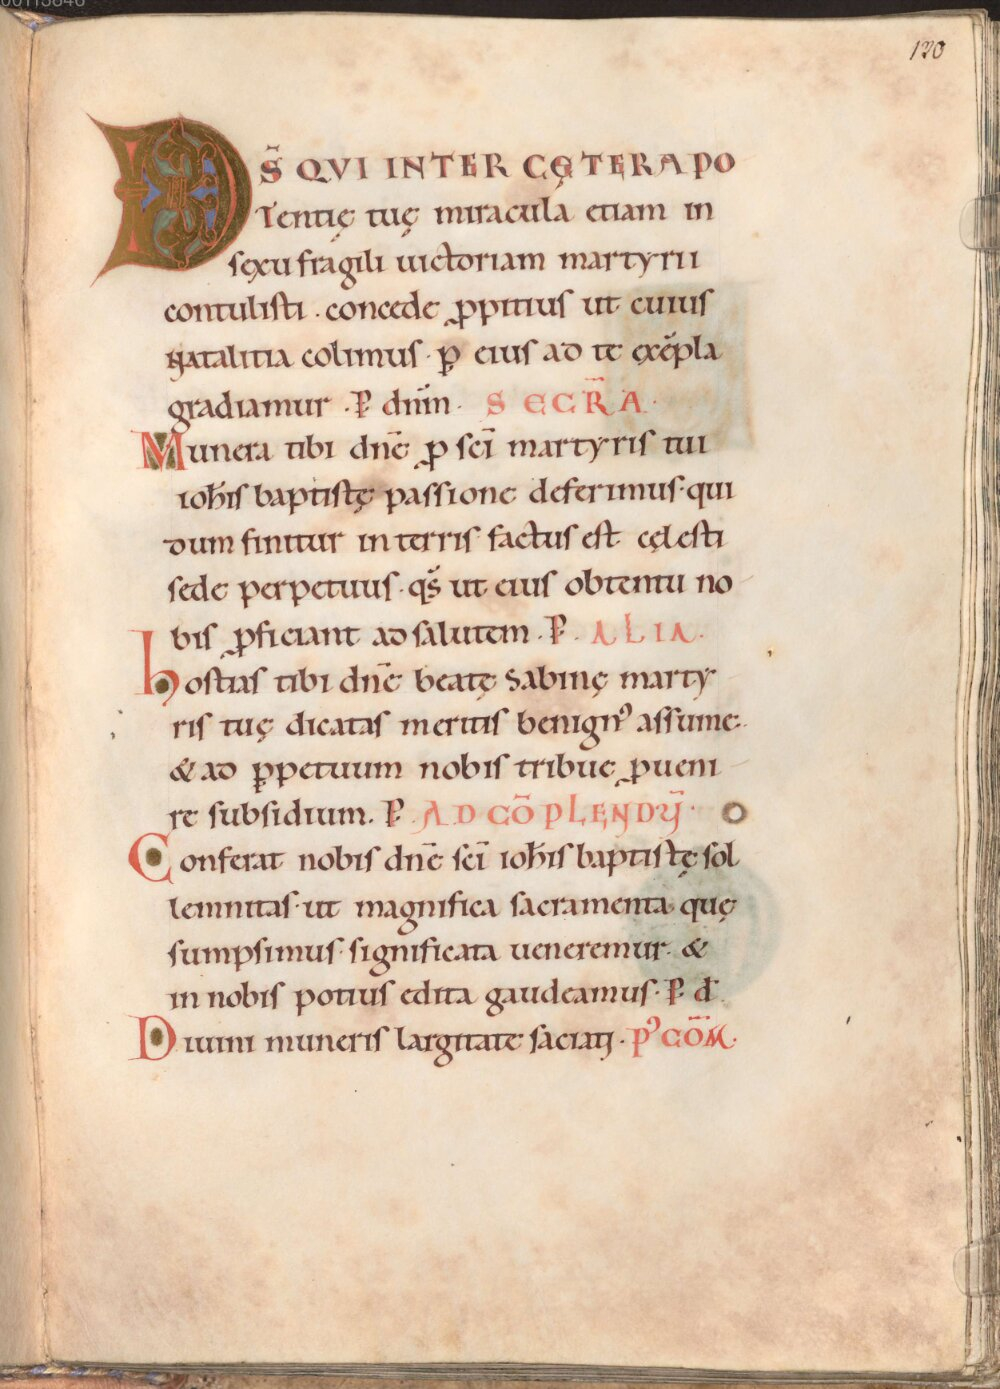 120
DS̄ QVI INTER CĘTERA PO
tentię tuę miracula etiam in
sexu fragili uictoriam martyrii
contulisti . concede ꝓpitius ut cuius
Natalitia colimus · ꝑ eius ad te exēpla
gradiamur . P̄ dnm̄ . SECR̄A .
Munera tibi dn̄e ꝓ sc̄i martyris tui
ioh̄is baptistę passione deferimus · qui
dum finitur in terris factus est cęlesti
sede perpetuus · qs̄ ut eius obtentu no
bis ꝓficiant ad salutem . P̄ . ALIA .
hostias tibi dn̄e beatę Sabinę marty
ris tuę dicatas meritis benign᾿ assume ·
& ad ꝑpetuum nobis tribue ꝓueni
re subsidium . P̄ . AD CŌPLENDV̄ ·
Conferat nobis dn̄e sc̄i ioh̄is baptistę sol
lemnitas · ut magnifica sacramenta quę
sumpsimus · significata ueneremur · &
in nobis potius edita gaudeamus · P̄ d̄
Diuini muneris largitate saciati · P᾿ CŌM ·